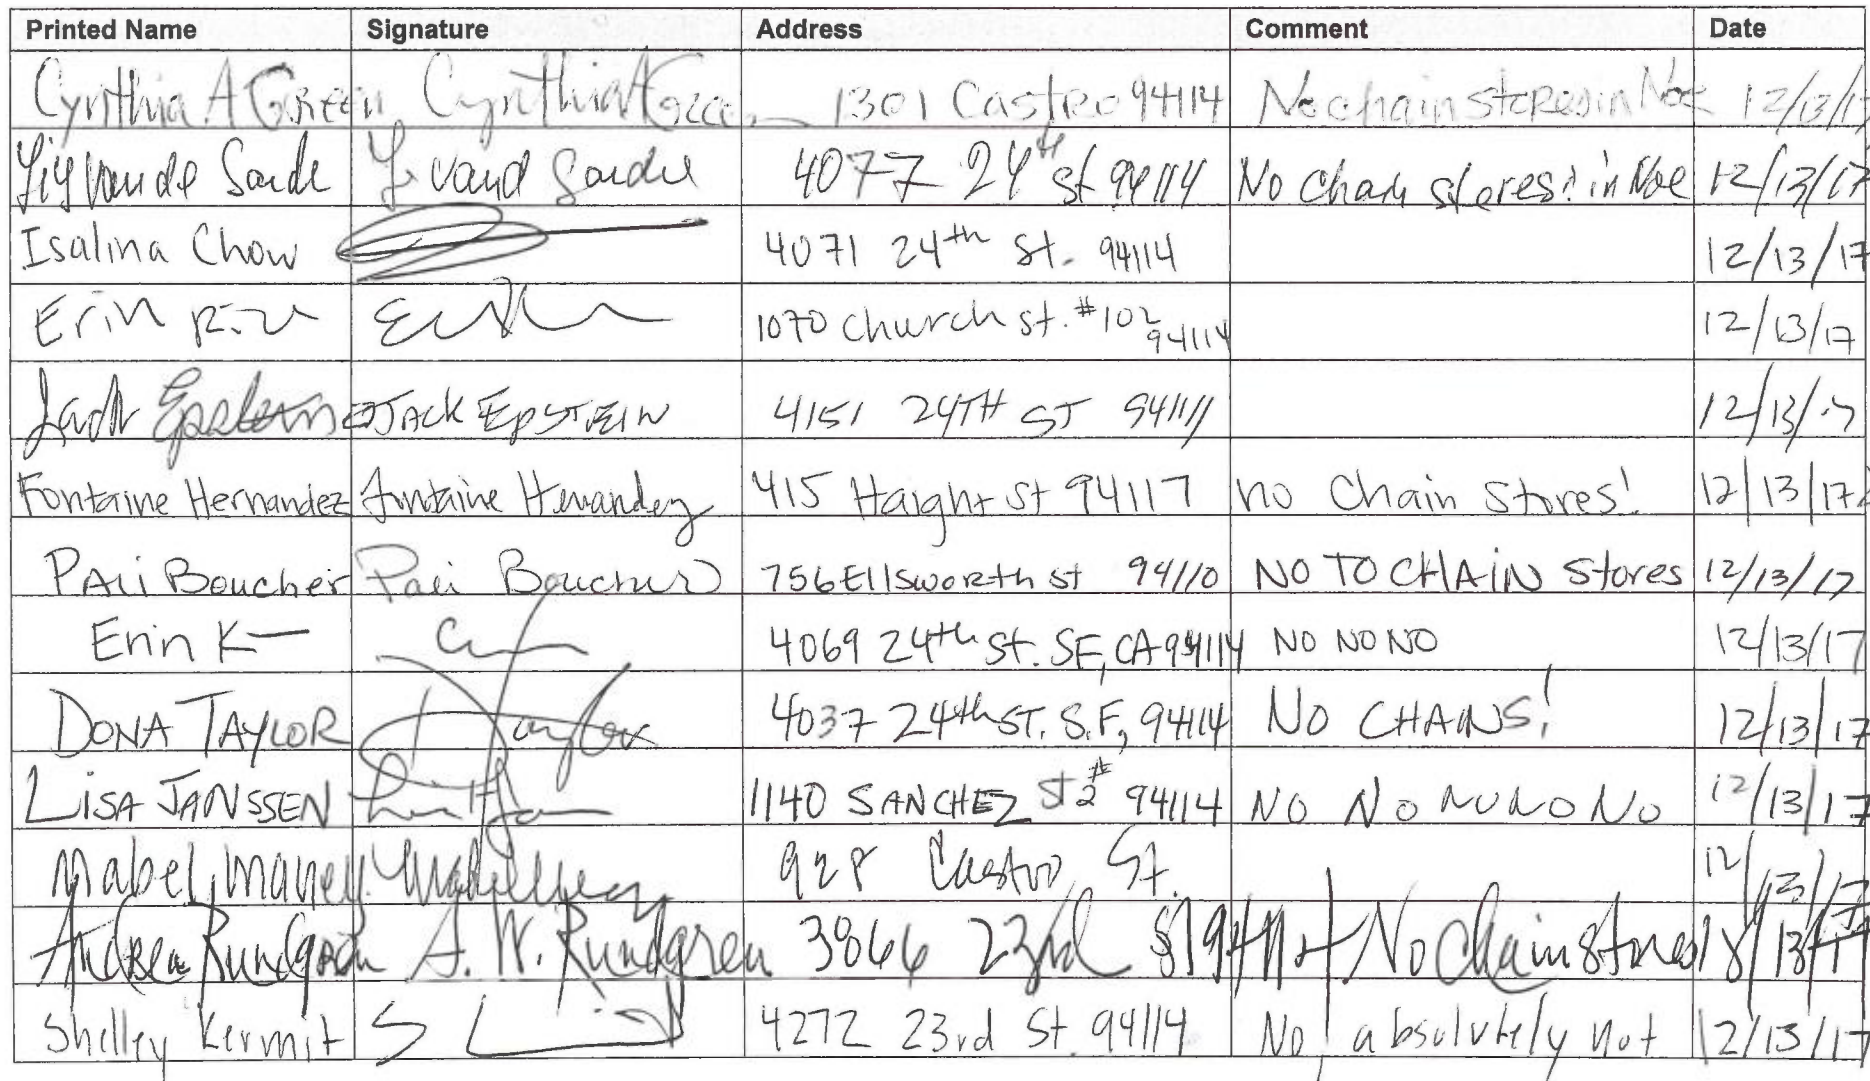 Printed Name Signature Address Comment Date
Cynthia A Green Cynthia A Green 1301 Castro 94114 No chain stores in Noe 12/13/17
van de Sande 4077 24th St 94114 No chain stores! in Noe 12/13/17
Isalina Chow 4071 24th St. 94114 12/13/17
Erin 1070 Church St. #102 94114 12/13/17
Jack Epstein JACK EPSTEIN 4151 24TH ST 94111 12/13/17
Fontaine Hernandez Fontaine Hernandez 415 Haight St 94117 no Chain Stores! 12/13/17
PAli Boucher Pali Boucher 756 Ellsworth st 94110 NO TO CHAiN Stores 12/13/17
Erin K 4069 24th St. SF, CA 94114 NO NO NO 12/13/17
DONA TAYLOR D Taylor 4037 24th ST. S.F, 94114 NO CHAINS! 12/13/17
LISA JANSSEN 1140 SANCHEZ St #2 94114 NO NO NO NO NO 12/13/17
Mabel Maney 928 Castro St. 12/13/17
Andrea Rundgren A. W. Rundgren 3866 23rd St 94114 No Chain stores 12/13/17
Shelley Kermit 4272 23rd St 94114 No, absolutely not 12/13/17